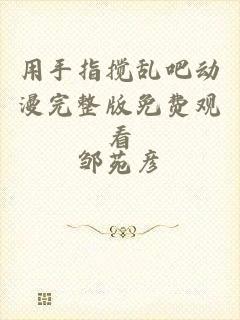 用手指搅乱吧动
漫完整版免费观
看
邹苑彦